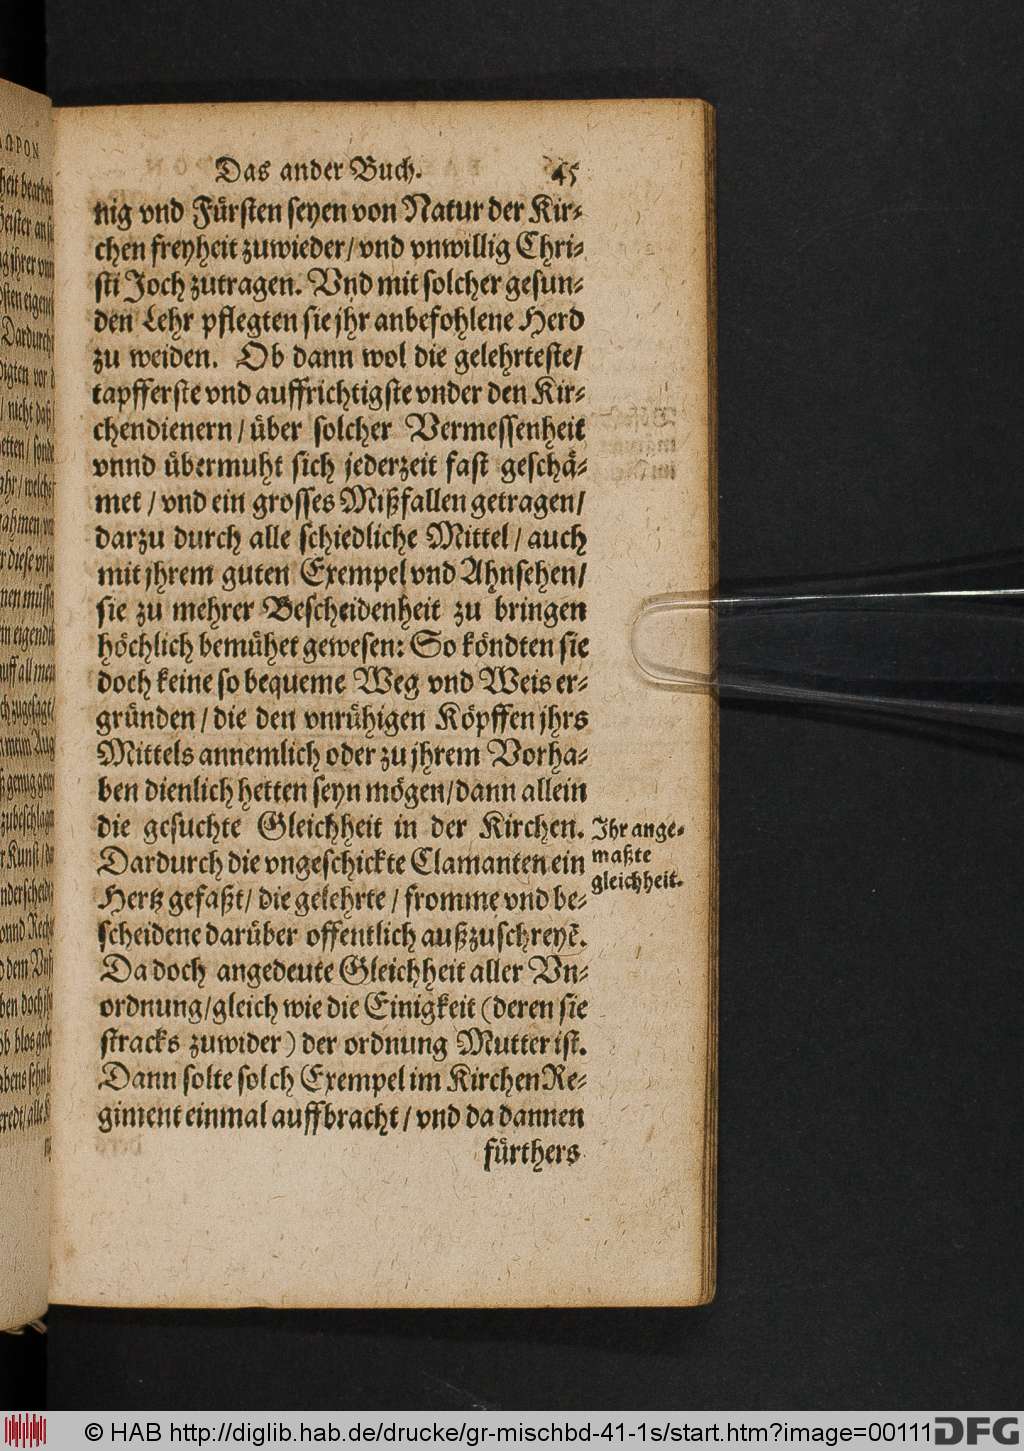 Das ander Buch. 45
nig vnd Fürsten seyen von Natur der Kir-
chen freyheit zuwieder/ vnd vnwillig Chri-
sti Joch zutragen. Vnd mit solcher gesun-
den Lehr pflegten sie jhr anbefohlene Herd
zu weiden. Ob dann wol die gelehrteste/
tapfferste vnd auffrichtigste vnder den Kir-
chendienern/ über solcher Vermessenheit
vnnd übermuht sich jederzeit fast geschä-
met/ vnd ein grosses Mißfallen getragen/
darzu durch alle schiedliche Mittel/ auch
mit jhrem guten Exempel vnd Ahnsehen/
sie zu mehrer Bescheidenheit zu bringen
höchlich bemühet gewesen: So köndten sie
doch keine so bequeme Weg vnd Weis er-
gründen/ die den vnrühigen Köpffen jhrs
Mittels annemlich oder zu jhrem Vorha-
ben dienlich hetten seyn mögen/ dann allein
die gesuchte Gleichheit in der Kirchen.
Dardurch die vngeschickte Clamanten ein
Hertz gefaßt/ die gelehrte/ fromme vnd be-
scheidene darüber offentlich außzuschreyẽ.
Da doch angedeute Gleichheit aller Vn-
ordnung/ gleich wie die Einigkeit (deren sie
stracks zuwider) der ordnung Mutter ist.
Dann solte solch Exempel im Kirchen Re-
giment einmal auffbracht/ vnd da dannen
fürthers
Ihr ange-
maßte
gleichheit.
© HAB http://diglib.hab.de/drucke/gr-mischbd-41-1s/start.htm?image=00111
DFG